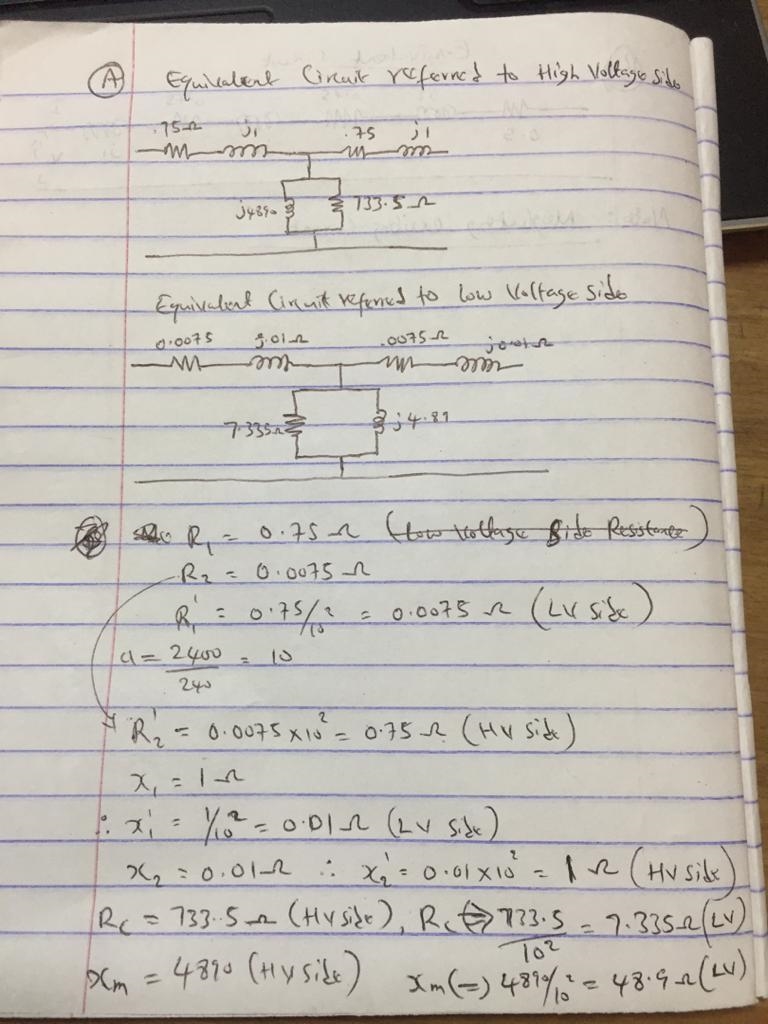 (A) Equivalent Circuit referred to High Voltage Side
.75Ω j1 .75 j1
j4890 733.5 Ω
Equivalent Circuit referred to Low Voltage Side
0.0075 j.01Ω .0075Ω j0.01Ω
7.335Ω j4.89
R₁ = 0.75 Ω (Low Voltage Side Resistance)
R₂ = 0.0075 Ω
R₁' = 0.75/10² = 0.0075 Ω (LV Side)
a = 2400/240 = 10
R₂' = 0.0075×10² = 0.75 Ω (HV Side)
x₁ = 1 Ω
∴ x₁' = 1/10² = 0.01 Ω (LV Side)
x₂ = 0.01Ω ∴ x₂' = 0.01×10² = 1 Ω (HV Side)
Rc = 733.5 Ω (HV Side), Rc ⇒ 733.5/10² = 7.335Ω (LV)
xm = 4890 (HV Side) xm(=) 4890/10² = 48.9 Ω (LV)